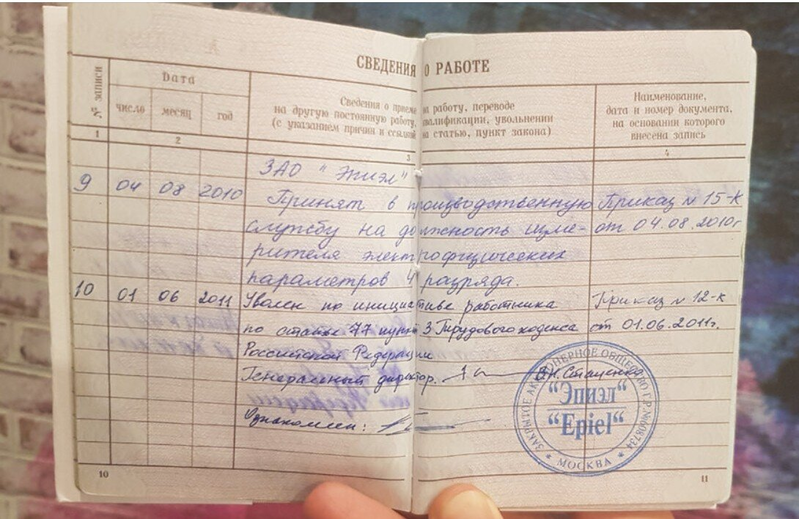 СВЕДЕНИЯ О РАБОТЕ
№ записи
Дата
число месяц год
Сведения о приеме на работу, переводе
на другую постоянную работу, квалификации, увольнении
(с указанием причин и ссылкой на статью, пункт закона)
Наименование,
дата и номер документа,
на основании которого
внесена запись
1 2 3 4
ЗАО "Эпиэл"
9 04 08 2010 Принят в производственную Приказ № 15-к
службу на должность изме- от 04.08.2010г
рителя электрофизических
параметров 4 разряда.
10 01 06 2011 Уволен по инициативе работника Приказ № 12-к
по статье 77 пункт 3 Трудового кодекса от 01.06.2011г.
Российской Федерации
Генеральный директор. Стаценко
Ознакомлен:
ЗАКРЫТОЕ АКЦИОНЕРНОЕ ОБЩЕСТВО
"Эпиэл"
"Epiel"
* МОСКВА *
10 11